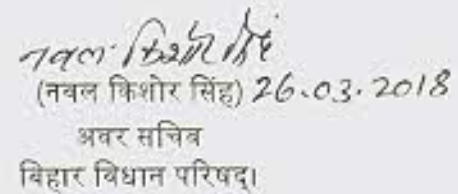 नवल किशोर सिंह
(नवल किशोर सिंह) 26.03.2018
अवर सचिव
बिहार विधान परिषद्।